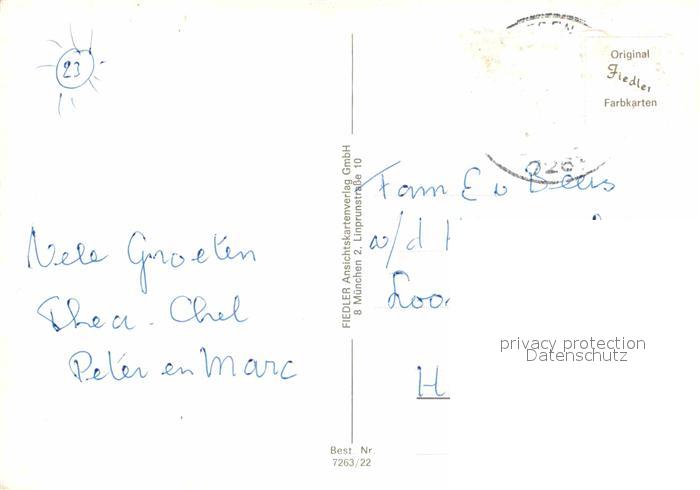 23
Original
Fiedler
Farbkarten
FIEDLER Ansichtskartenverlag GmbH
8 München 2, Linprunstraße 10
Fam E v
a/d
Loo
H
Vele Groeten
Thea - Chel
Peter en Marc
privacy protection
Datenschutz
Best. Nr.
7263/22